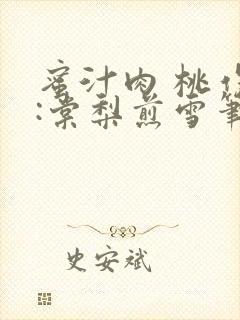 蜜汁肉桃作
:棠梨煎雪笔
史安斌